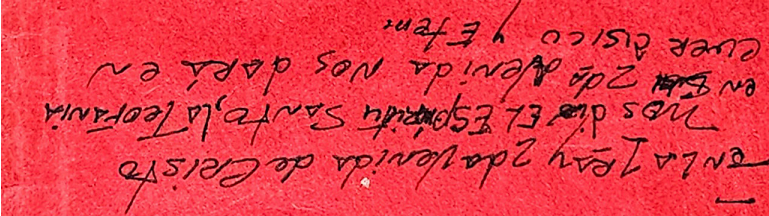 EN LA 1RA y 2da Venida de CRISTO
NOS dio EL ESPíRitu SANto, LA TEOFANIA
en 2da Venida NOS dará en
y Etern